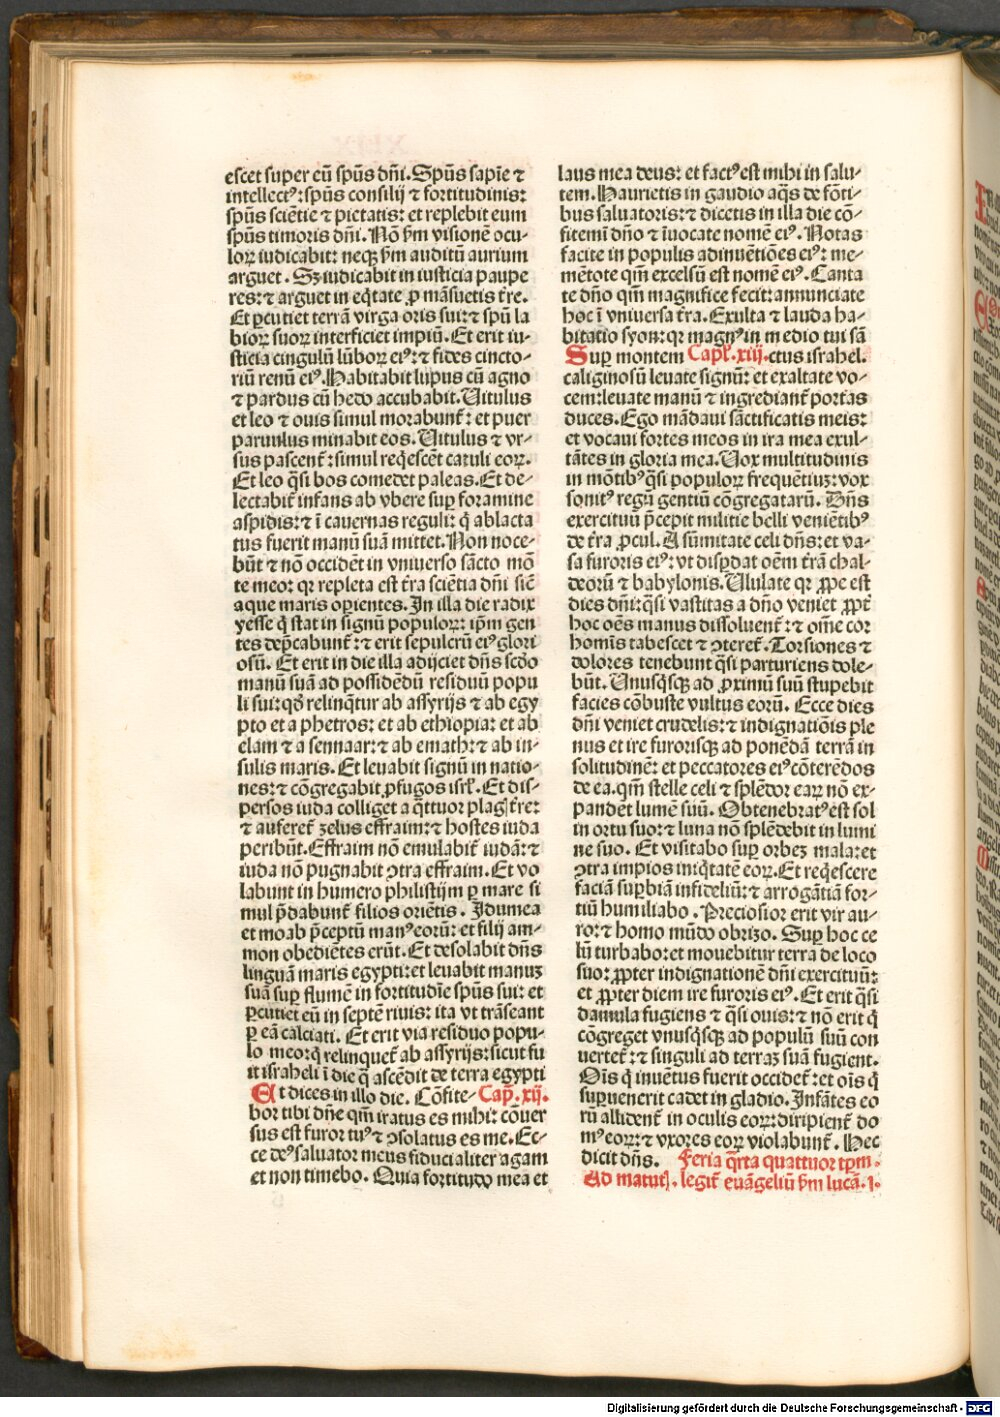 escet super eū spūs dn̄i. Spūs sapīe ⁊
intellectꝰ: spūs consilij ⁊ fortitudinis:
spūs sciētie ⁊ pietatis: et replebit eum
spūs timoris dn̄i. Nō ẜm visionē ocu-
loꝝ iudicabit: neqꝫ ẜm auditū aurium
arguet. Sꝫ iudicabit in iusticia paupe
res: ⁊ arguet in eq̄tate ꝓ māsuetis t̄re.
Et ꝑcutiet terrā virga oris sui: ⁊ spū la
bioꝝ suoꝝ interficiet impiū. Et erit iu-
sticia cingulū lūboꝝ eiꝰ: ⁊ fides cincto-
riū renū eiꝰ. Habitabit lupus cū agno
⁊ pardus cū hedo accubabit. Vitulus
et leo ⁊ ouis simul morabunt̄: et puer
paruulus minabit eos. Vitulus ⁊ vr-
sus pascent̄: simul reqͥescēt catuli eoꝝ.
Et leo qͣsi bos comedet paleas. Et de-
lectabit̄ infans ab vbere suꝑ foramine
aspidis: ⁊ ī cauernas reguli: qͥ ablacta
tus fuerit manū suā mittet. Non noce-
būt ⁊ nō occidēt in vniuerso sācto mō
te meo: qꝛ repleta est t̄ra sciētia dn̄i sic̄
aque maris oꝑientes. In illa die radix
yesse qͥ stat in signū populoꝝ: ip̄m gen
tes dep̄cabunt̄: ⁊ erit sepulcrū eiꝰ glori
osū. Et erit in die illa adijciet dn̄s scd̄o
manū suā ad possidēdū residuū popu
li sui: qd̄ relinq̄tur ab assyrijs ⁊ ab egy
pto et a phetros: et ab ethiopia: et ab
elam ⁊ a sennaar: ⁊ ab emath: ⁊ ab in-
sulis maris. Et leuabit signū in natio-
nes: ⁊ cōgregabit ꝓfugos isrl̄. Et dis-
persos iuda colliget a qͣttuor plagꝭ t̄re:
⁊ auferet̄ zelus effraim: ⁊ hostes iuda
peribūt. Effraim nō emulabit̄ iudā: ⁊
iuda nō pugnabit ꝯtra effraim. Et vo
labunt in humero philistijm ꝑ mare si
mul p̄dabunt̄ filios oriētis. Idumea
et moab p̄ceptū manꝰ eorū: et filij am-
mon obediētes erūt. Et desolabit dn̄s
linguā maris egypti: et leuabit manuꝫ
suā suꝑ flumē in fortitudīe spūs sui: et
ꝑcutiet eū in septē riuis: ita vt trāseant
ꝑ eā calciati. Et erit via residuo popu-
lo meo: qͥ relinquet̄ ab assyrijs: sicut fu
it israheli ī die qͣ ascēdit de terra egypti
Et dices in illo die. Cōfite- Cap̄. xij.
bor tibi dn̄e qm̄ iratus es mihi: cōuer
sus est furor tuꝰ ⁊ ꝯsolatus es me. Ec-
ce deꝰ saluator meus fiducialiter agam
et non timebo. Quia fortitudo mea et
laus mea deus: et factꝰ est mihi in salu-
tem. Haurietis in gaudio aq̄s de fōti-
bus saluatoris: ⁊ dicetis in illa die cō-
fitemī dn̄o ⁊ īuocate nomē eiꝰ. Notas
facite in populis adinuētiōes eiꝰ: me-
mētote qm̄ excelsū est nomē eiꝰ. Canta
te dn̄o qm̄ magnifice fecit: annunciate
hoc ī vniuersa t̄ra. Exulta ⁊ lauda ha-
bitatio syon: qꝛ magnꝰ in medio tui sā
Suꝑ montem Capl̄. xiij. ctus israhel.
caliginosū leuate signū: et exaltate vo-
cem: leuate manū ⁊ ingrediant̄ portas
duces. Ego mādaui sāctificatis meis:
et vocaui fortes meos in ira mea exul-
tātes in gloria mea. Vox multitudinis
in mōtibꝰ qͣsi populoꝝ frequētiuꝫ: vox
sonitꝰ regū gentiū cōgregatarū. Dn̄s
exercituū p̄cepit militie belli veniētibꝰ
de t̄ra ꝓcul. A sūmitate celi dn̄s: et va-
sa furoris eiꝰ: vt disꝑdat oēm t̄rā chal-
deorū ⁊ babylonis. Ululate qꝛ ꝓpe est
dies dn̄i: qͣsi vastitas a dn̄o veniet ꝓpt̄
hoc oēs manus dissoluent̄: ⁊ om̄e cor
homīs tabescet ⁊ ꝯteret̄. Torsiones ⁊
dolores tenebunt qͣsi parturiens dole-
būt. Unusqͥsqꝫ ad ꝓximū suū stupebit
facies cōbuste vultus eorū. Ecce dies
dn̄i veniet crudelis: ⁊ indignatiōis ple
nus et ire furorisqꝫ ad ponēdā terrā in
solitudinē: et peccatores eiꝰ cōterēdos
de ea. qm̄ stelle celi ⁊ splēdor eaꝝ nō ex-
pandēt lumē suū. Obtenebratꝰ est sol
in ortu suo: ⁊ luna nō splēdebit in lumi
ne suo. Et visitabo suꝑ orbeꝫ mala: et
ꝯtra impios iniq̄tatē eoꝝ. Et reqͥescere
faciā suꝑbiā infideliū: ⁊ arrogātiā for-
tiū humiliabo. Preciosior erit vir au-
ro: ⁊ homo mūdo obrizo. Suꝑ hoc ce
lū turbabo: et mouebitur terra de loco
suo: ꝓpter indignationē dn̄i exercituū:
et ꝓpter diem ire furoris eiꝰ. Et erit qͣsi
damula fugiens ⁊ qͣsi ouis: ⁊ nō erit qͥ
cōgreget vnusqͥsqꝫ ad populū suū con
uertet̄: ⁊ singuli ad terraꝫ suā fugient.
Oīs qͥ inuētus fuerit occidet̄: et oīs qͥ
suꝑuenerit cadet in gladio. Infātes eo
rū allident̄ in oculis eoꝝ: diripient̄ do
mꝰ eoꝝ: ⁊ vxores eoꝝ violabunt̄. Hec
dicit dn̄s. Feria qͣrta quattuor tꝑm.
Ad matutꝭ. legit̄ euāgeliū ẜm lucā. j.
Digitalisierung gefördert durch die Deutsche Forschungsgemeinschaft - DFG